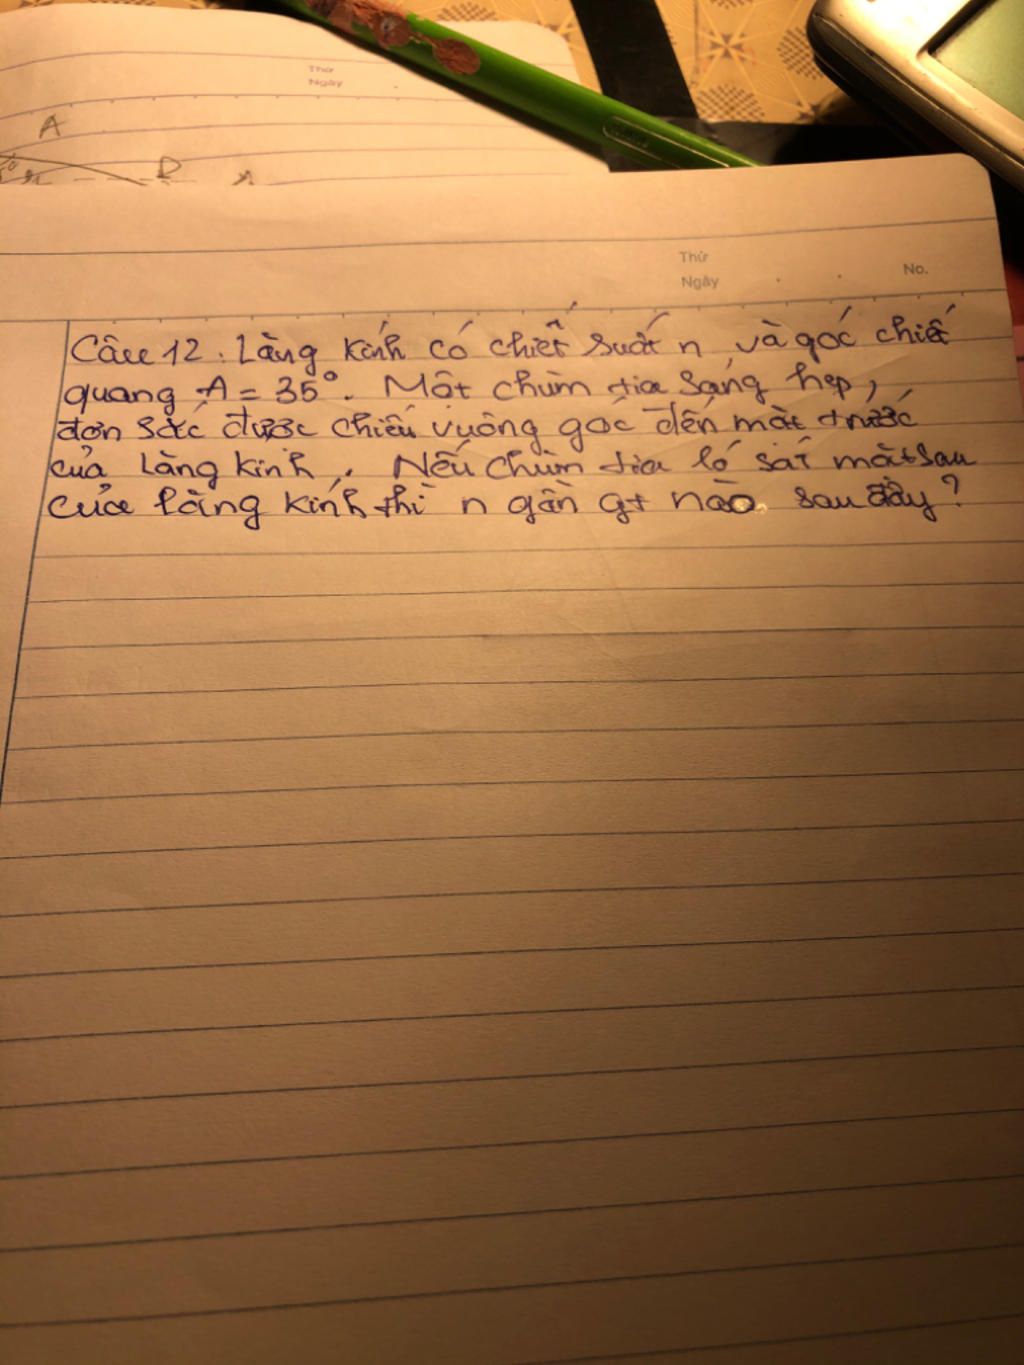 Thứ
Ngày
A
Thứ
Ngày
No.
Câu 12. Lăng kính có chiết suất n và góc chiết
quang A = 35°. Một chùm tia sáng hẹp,
đơn sắc được chiếu vuông góc đến mặt trước
của lăng kính. Nếu chùm tia ló sát mặt sau
của lăng kính thì n gần gt nào sau đây?